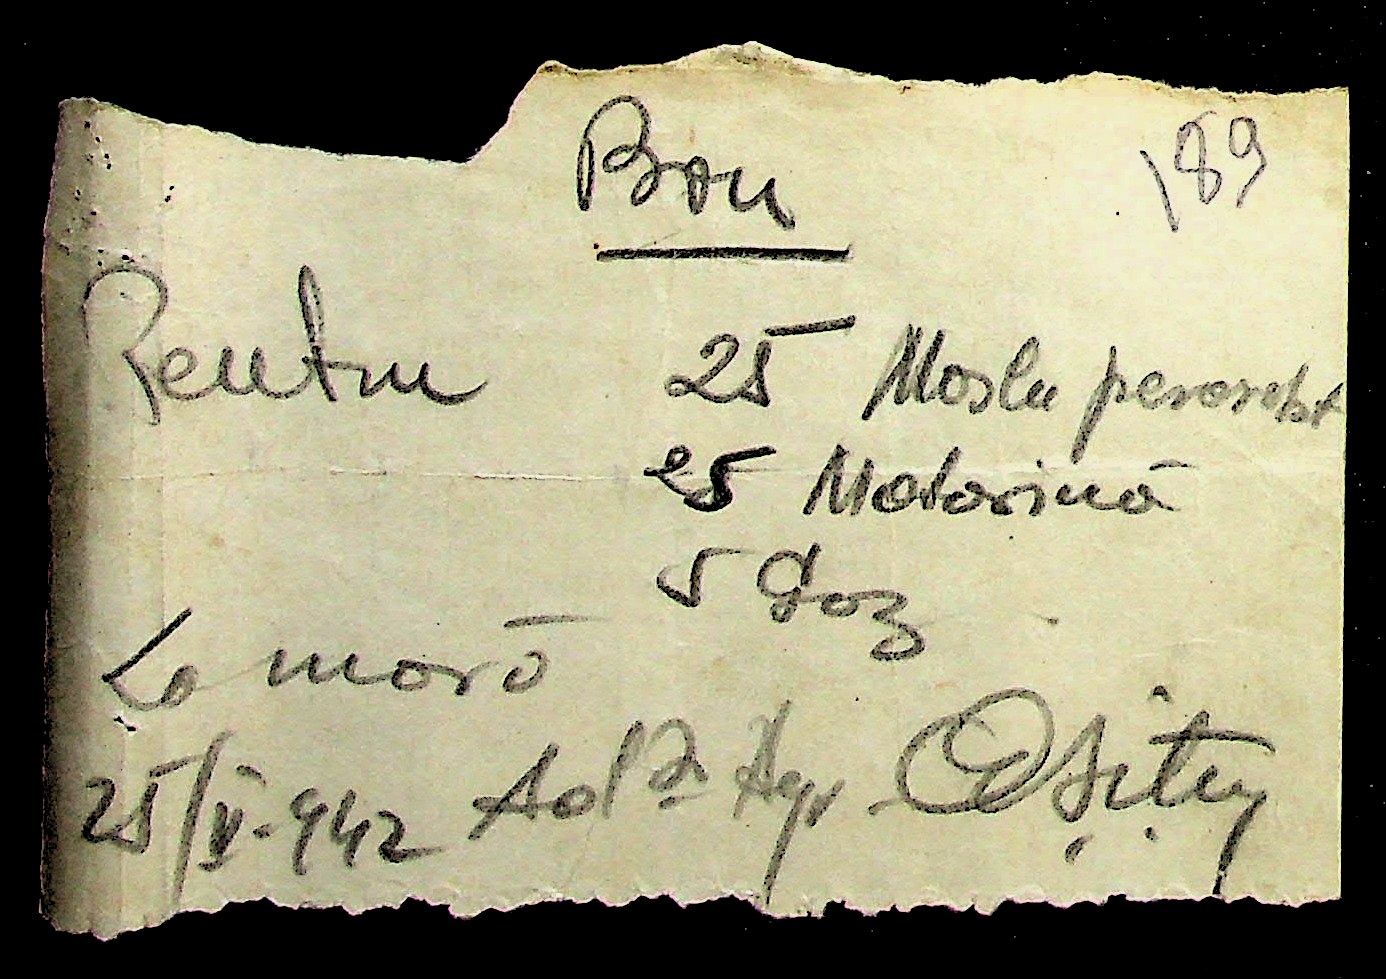 Bon
189
Pentru 25 Moslu
25 Motorină
5 Gaz
La moră
25/V-942 Ad-ția Agr.